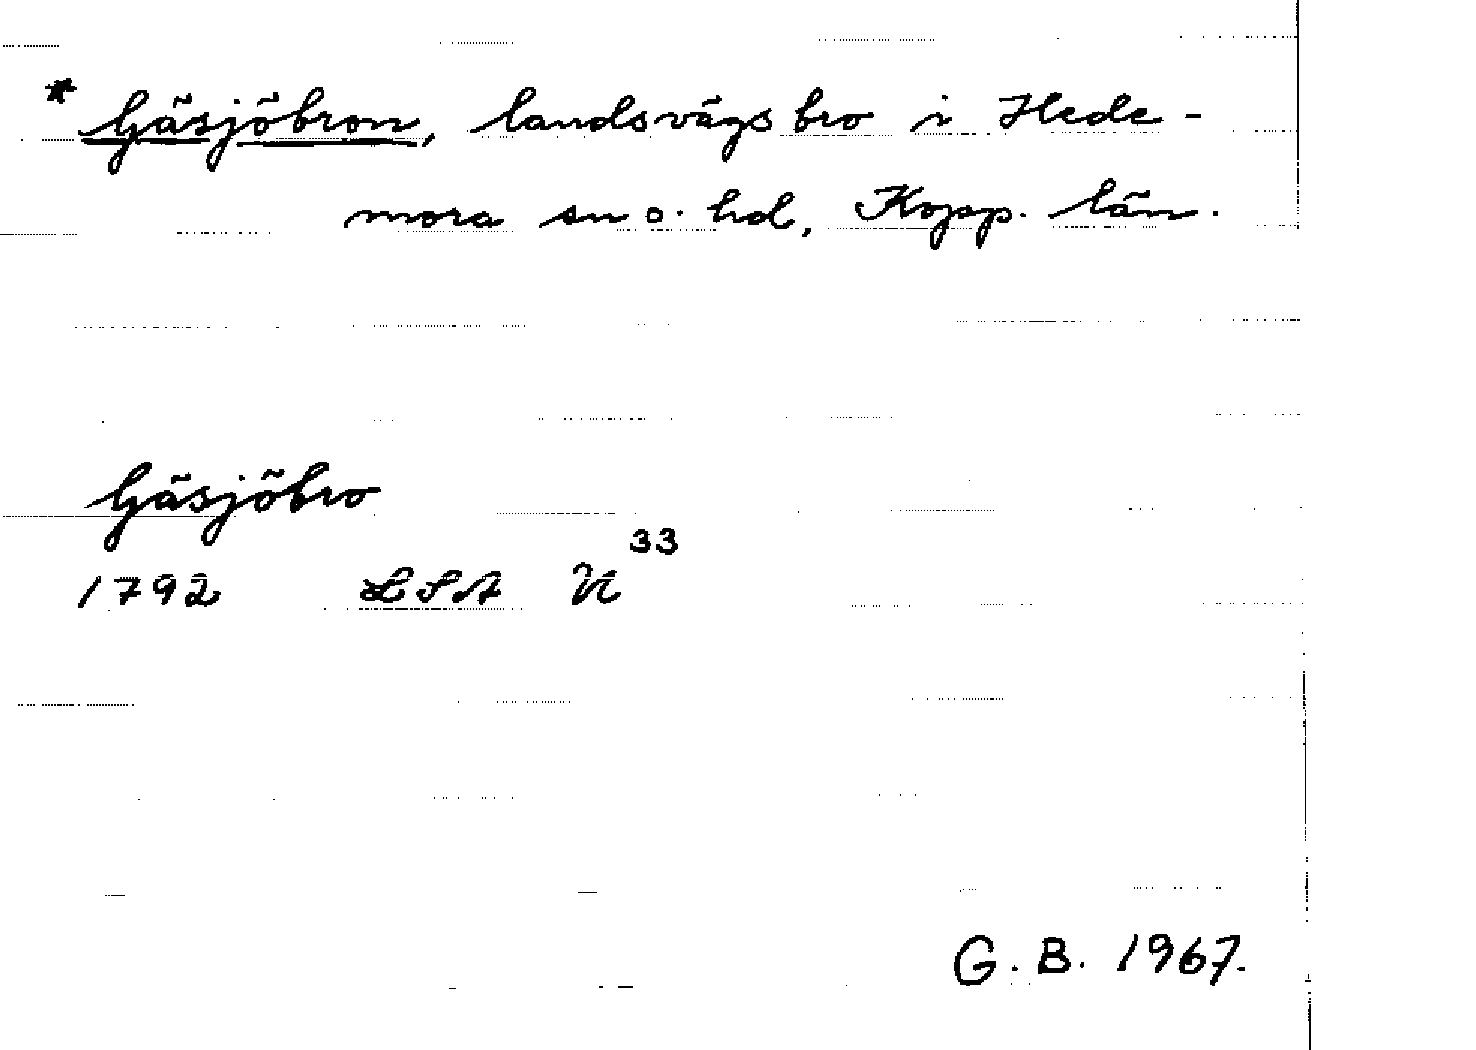 * Gäsjöbron, landsvägsbro i Hede-
mora sn o. hd, Kopp. län.
Gäsjöbro
1792 LSA U 33
G. B. 1967.